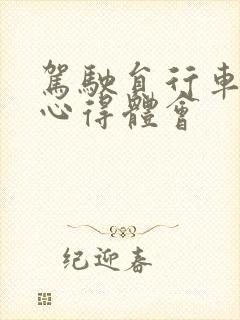 駕駛自行車
心得體會
纪迎春